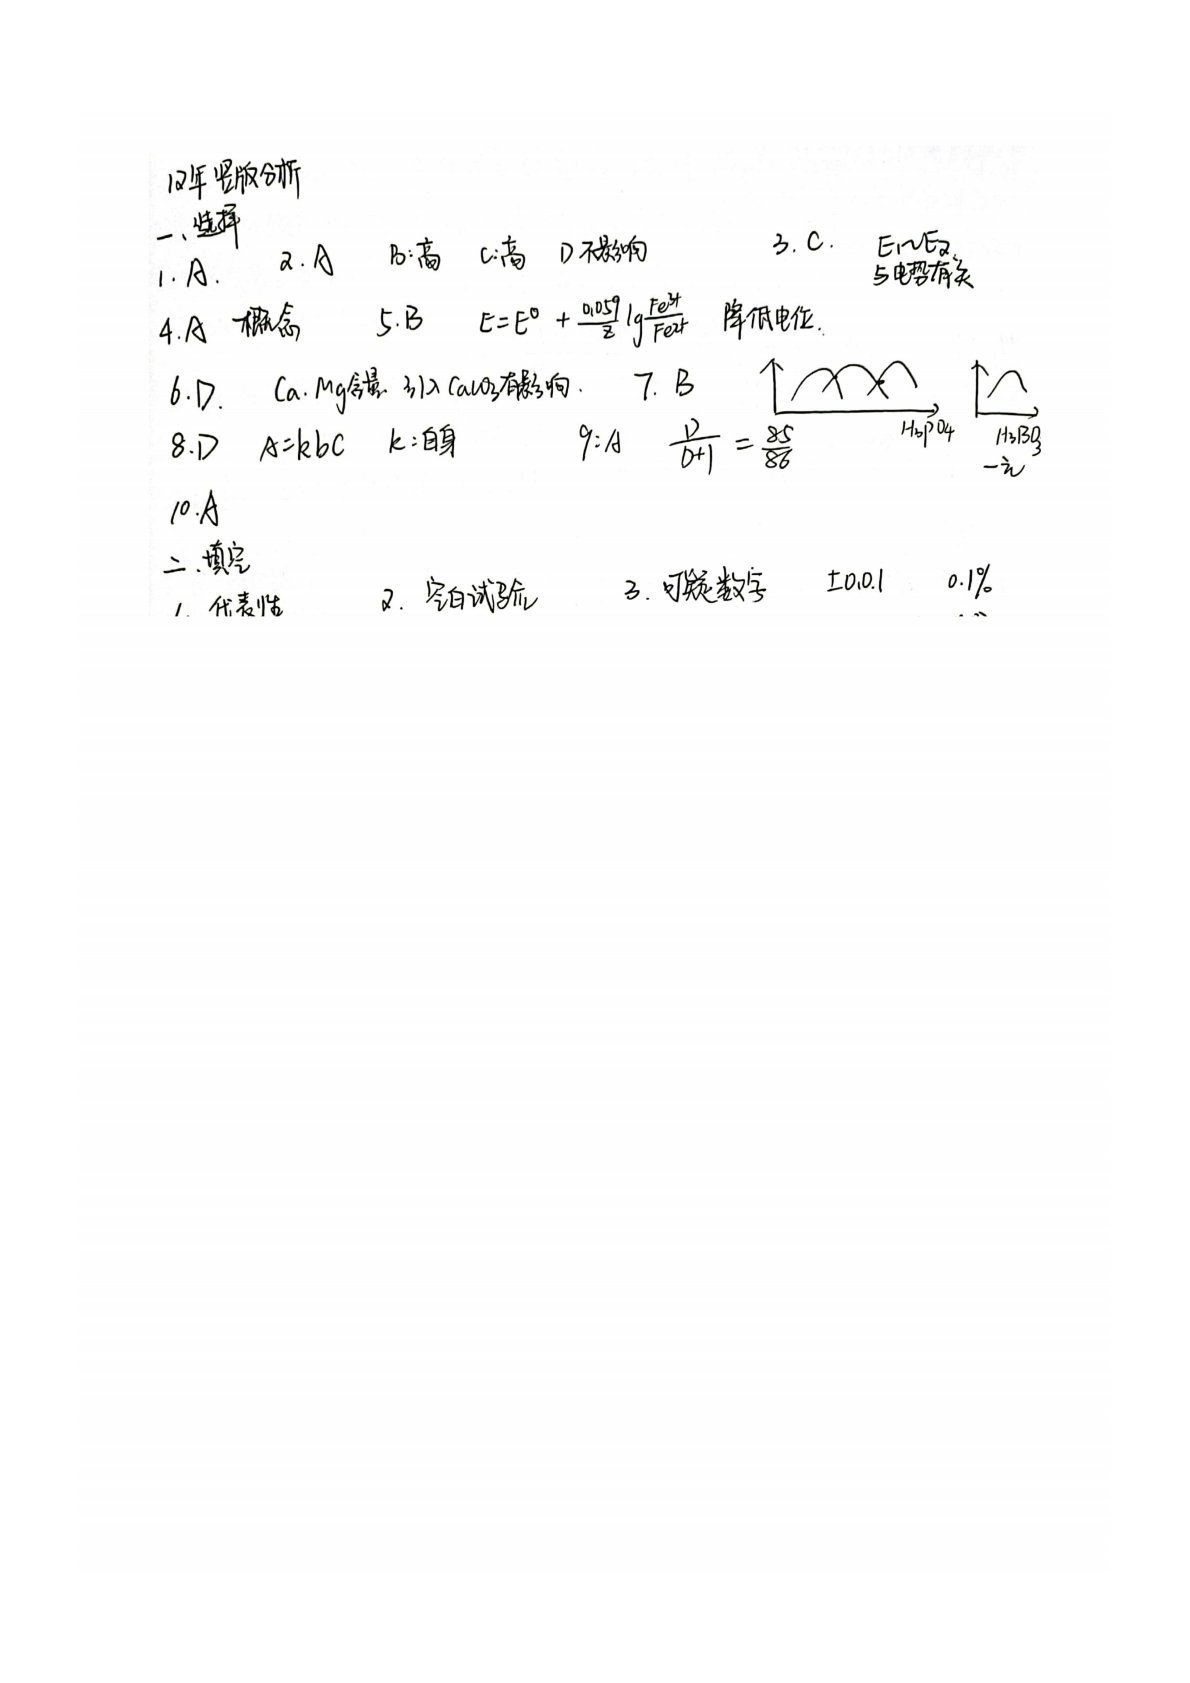 12年竖版分析
一、选择
1. A. 2. A B:高 C:高 D不影响 3. C. E1~E2、
与电势有关
4. A 概念 5. B E=E⁰ + 0.059/z lg Fe³⁺/Fe²⁺ 降低电位.
6. D. Ca. Mg含量. 引入CaCO3有影响. 7. B
8. D A=kbC k:自身 9: A D/D+1 = 85/86 H3PO4 H3BO3
一元
10. A
二、填空
1. 代表性 2. 空白试验 3. 可疑数字 ±0.0.1 0.1%